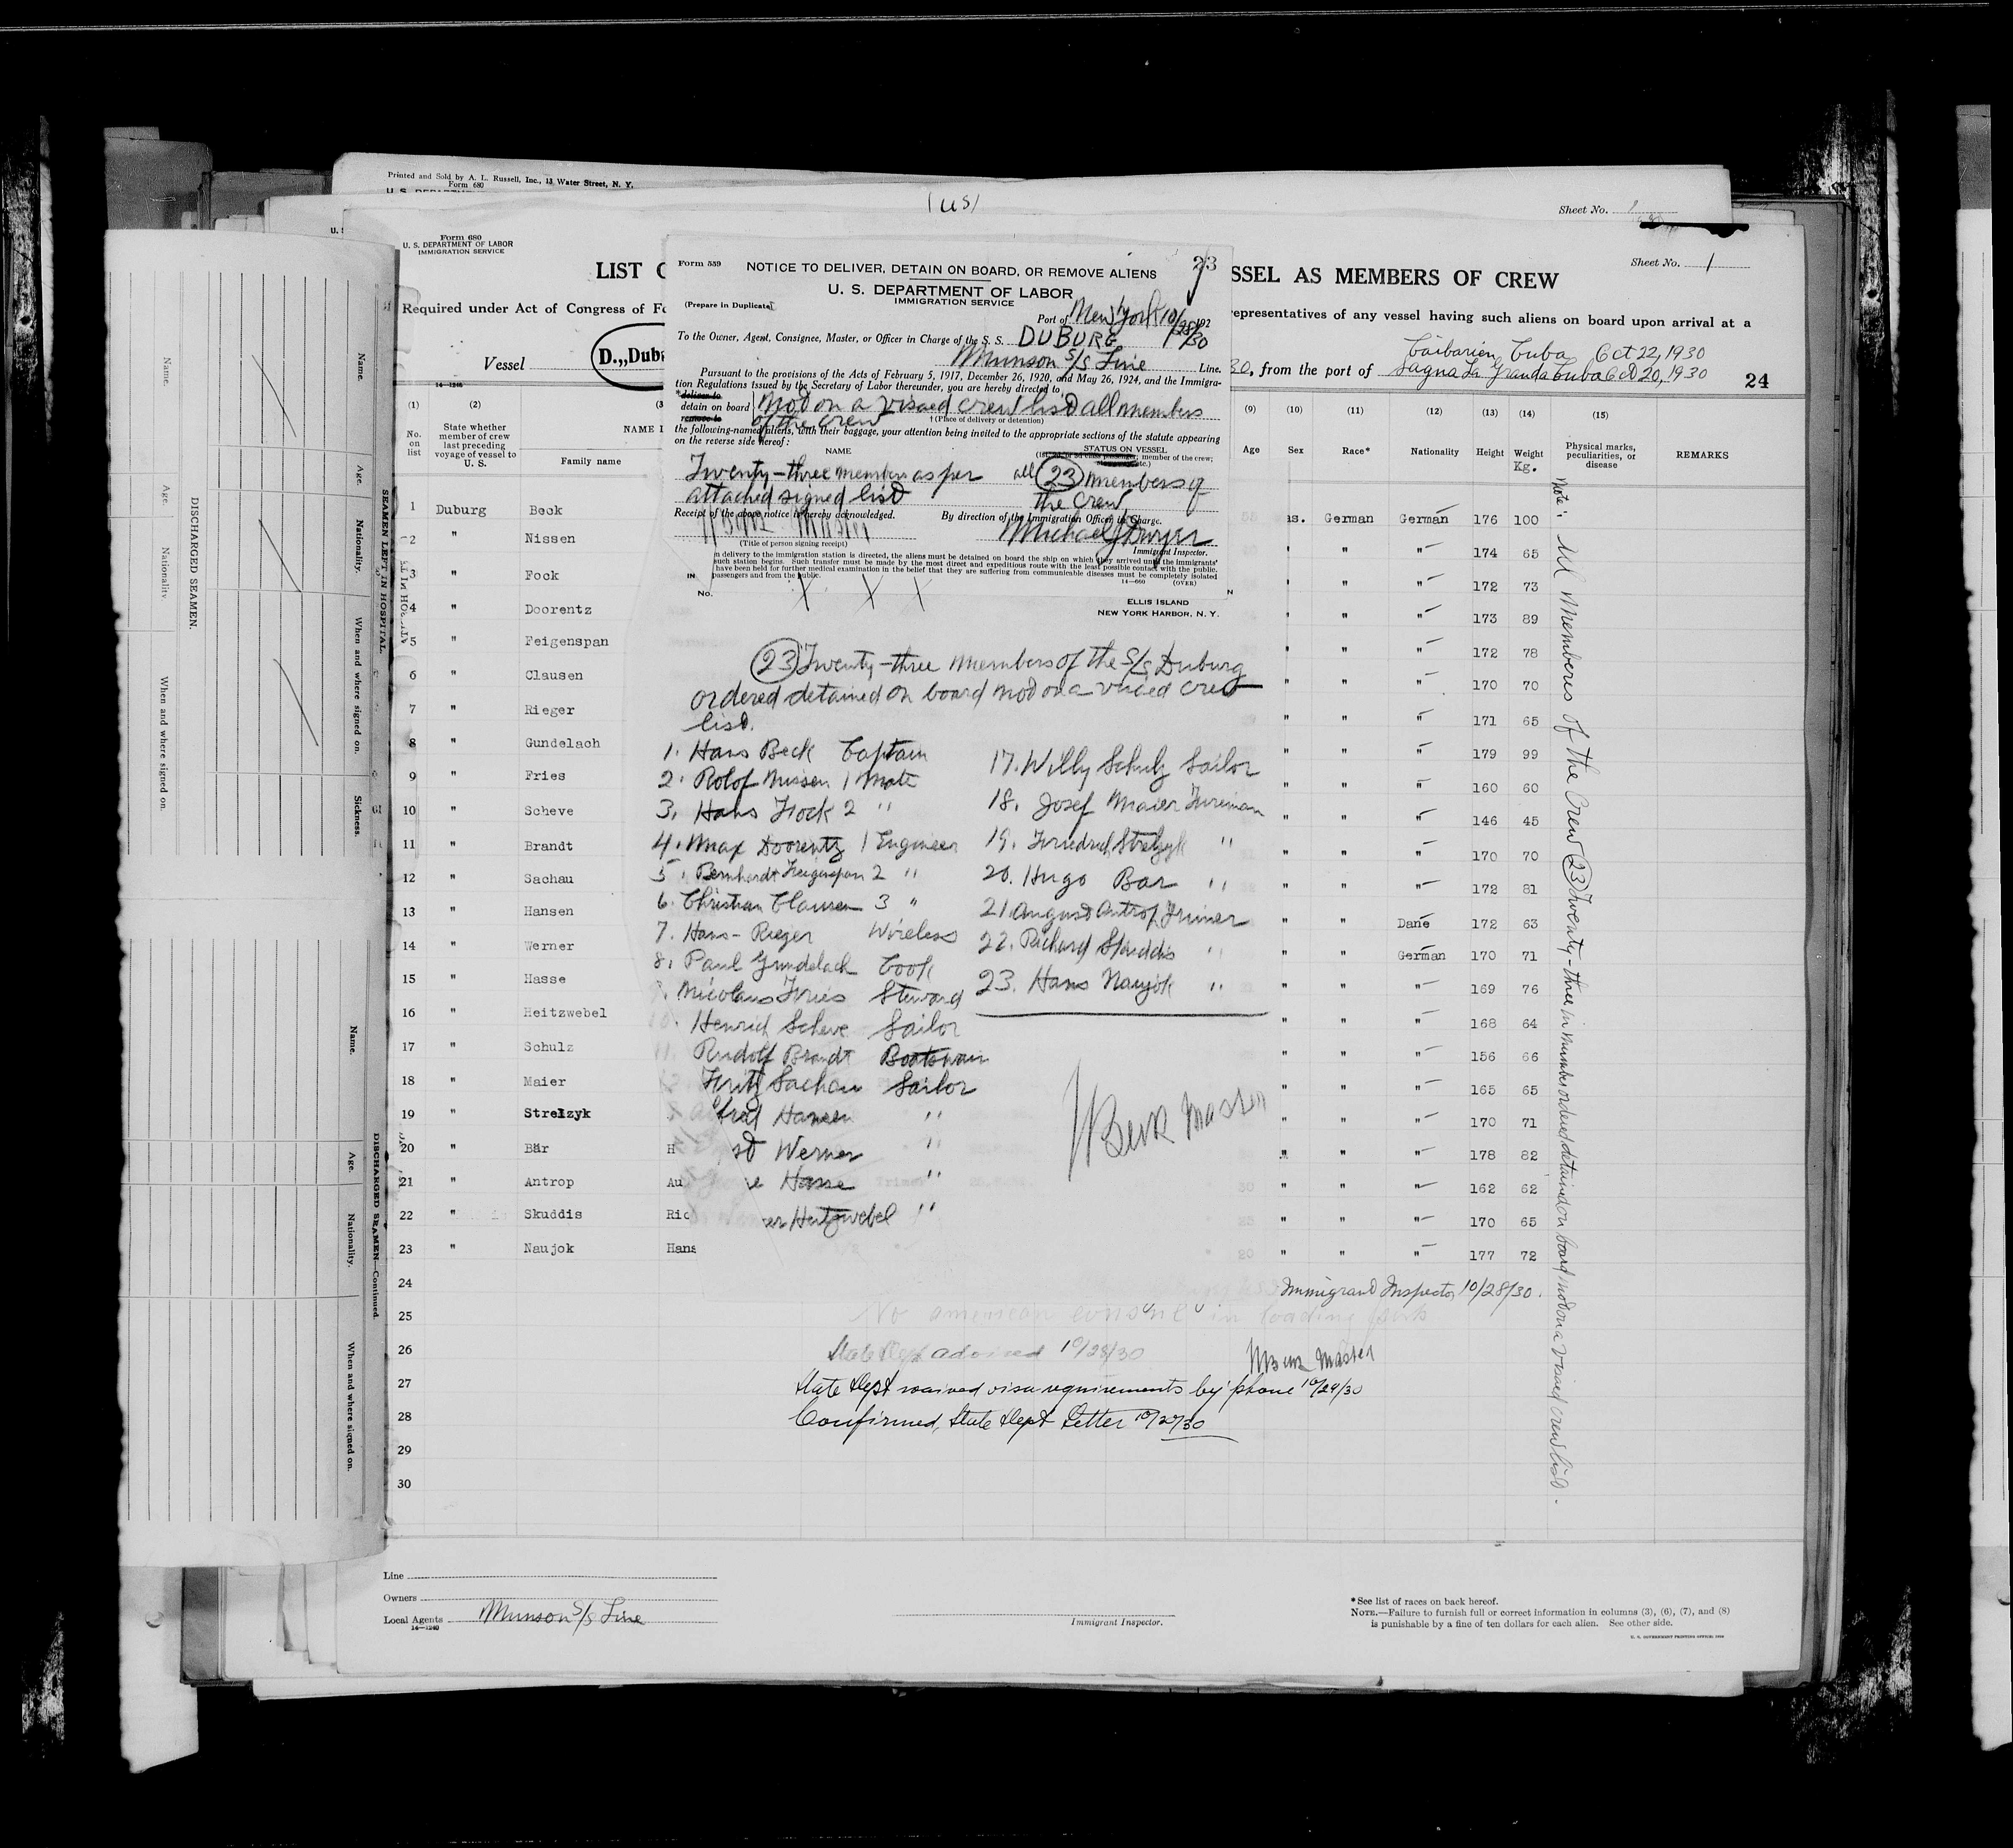 Printed and Sold by A. L. Russell, Inc., 13 Water Street, N. Y.
Form 680
(us)
Sheet No. 1
Form 680
U. S. DEPARTMENT OF LABOR
IMMIGRATION SERVICE
Sheet No. 1
LIST
SSEL AS MEMBERS OF CREW
Required under Act of Congress of
representatives of any vessel having such aliens on board upon arrival at a
Vessel D.,,Dub
Caibarien Cuba Oct 22, 1930
30, from the port of Sagua La Granda Cuba Oct 20, 1930
24
Form 559
23
NOTICE TO DELIVER, DETAIN ON BOARD, OR REMOVE ALIENS
U. S. DEPARTMENT OF LABOR
IMMIGRATION SERVICE
(Prepare in Duplicate)
Port of New York 10/28/30 192
To the Owner, Agent, Consignee, Master, or Officer in Charge of the S. S. DUBURG
Munson S/S Line Line.
Pursuant to the provisions of the Acts of February 5, 1917, December 26, 1920, and May 26, 1924, and the Immigra-
tion Regulations issued by the Secretary of Labor thereunder, you are hereby directed to
*deliver to
detain on board
remove to
Not on a visaed crew list all members
of the crew
†(Place of delivery or detention)
the following-named aliens, with their baggage, your attention being invited to the appropriate sections of the statute appearing
on the reverse side hereof:
NAME
STATUS ON VESSEL
member of the crew;
Twenty-three members as per all 23 members of
attached signed list the crew
Receipt of the above notice is hereby acknowledged.
By direction of the Immigration Officer in Charge.
Master
Michael J Dwyer
(Title of person signing receipt)
Immigrant Inspector.
m delivery to the immigration station is directed, the aliens must be detained on board the ship on which they arrived until the immigrants'
such station begins. Such transfer must be made by the most direct and expeditious route with the least possible contact with the public.
have been held for further medical examination in the belief that they are suffering from communicable diseases must be completely isolated
passengers and from the public.
14—660
(OVER)
IN
No.
ELLIS ISLAND
NEW YORK HARBOR, N. Y.
23 Twenty-three members of the S/S Duburg
ordered detained on board not on a visaed crew
list.
1. Hans Beck Captain
2. Rolof Nissen 1 Mate
3. Hans Fock 2 "
4. Max Doorentz 1 Engineer
5. Bernhardt Feigenspan 2 "
6. Christian Clausen 3 "
7. Hans Rieger Wireless
8. Paul Gundelach Cook
9. Nicolaus Fries Steward
10. Henrich Scheve Sailor
11. Rudolf Brandt Boatswain
12. Fritz Sachau Sailor
fred Hansen "
st Werner "
e Hasse "
er Heitzwebel "
17. Willy Schulz Sailor
18. Josef Maier Fireman
19. Friedrich Strelzyk "
20. Hugo Bar "
21. August Antrop Trimer
22. Richard Skuddis "
23. Hans Naujok "
H Beck Master
(1)
(2)
(3
No.
on
list
State whether
member of crew
last preceding
voyage of vessel to
U. S.
NAME I
Family name
1 Duburg Beck
2 " Nissen
3 " Fock
4 " Doorentz
5 " Feigenspan
6 " Clausen
7 " Rieger
8 " Gundelach
9 " Fries
10 " Scheve
11 " Brandt
12 " Sachau
13 " Hansen
14 " Werner
15 " Hasse
16 " Heitzwebel
17 " Schulz
18 " Maier
19 " Strelzyk
20 " Bär H
21 " Antrop Au
22 " Skuddis Ric
23 " Naujok Hans
24
25
26
27
28
29
30
(9) (10) (11) (12) (13) (14) (15)
Age Sex Race* Nationality Height Weight Kg.
Physical marks,
peculiarities, or
disease
REMARKS
as. German German 176 100
" " " 174 65
" " " 172 73
" " " 173 89
" " " 172 78
" " " 170 70
" " " 171 65
" " " 179 99
" " " 160 60
" " " 146 45
" " " 170 70
" " " 172 81
" " Dane 172 63
" " German 170 71
" " " 169 76
" " " 168 64
" " " 156 66
" " " 165 65
" " " 170 71
" " " 178 82
" " " 162 62
" " " 170 65
20 " " " 177 72
Note: All Members of the Crew 23 Twenty-three in number ordered detained on board not on a visaed crew list.
Immigrant Inspector 10/28/30.
No american consul in loading ports
State Dept advised 10/28/30
H Beck Master
State Dept waived visa requirements by phone 10/29/30
Confirmed, State Dept Letter 10/29/30
Line
Owners
Local Agents Munson S/S Line
14—1240
Immigrant Inspector.
*See list of races on back hereof.
NOTE.—Failure to furnish full or correct information in columns (3), (6), (7), and (8)
is punishable by a fine of ten dollars for each alien. See other side.
DISCHARGED SEAMEN.
Name.
Age
Nationality.
When and where signed on.
SEAMEN LEFT IN HOSPITAL.
Name.
Age.
Nationality.
When and where signed on.
Sickness.
DISCHARGED SEAMEN—Continued.
Name.
Age.
Nationality.
When and where signed on.